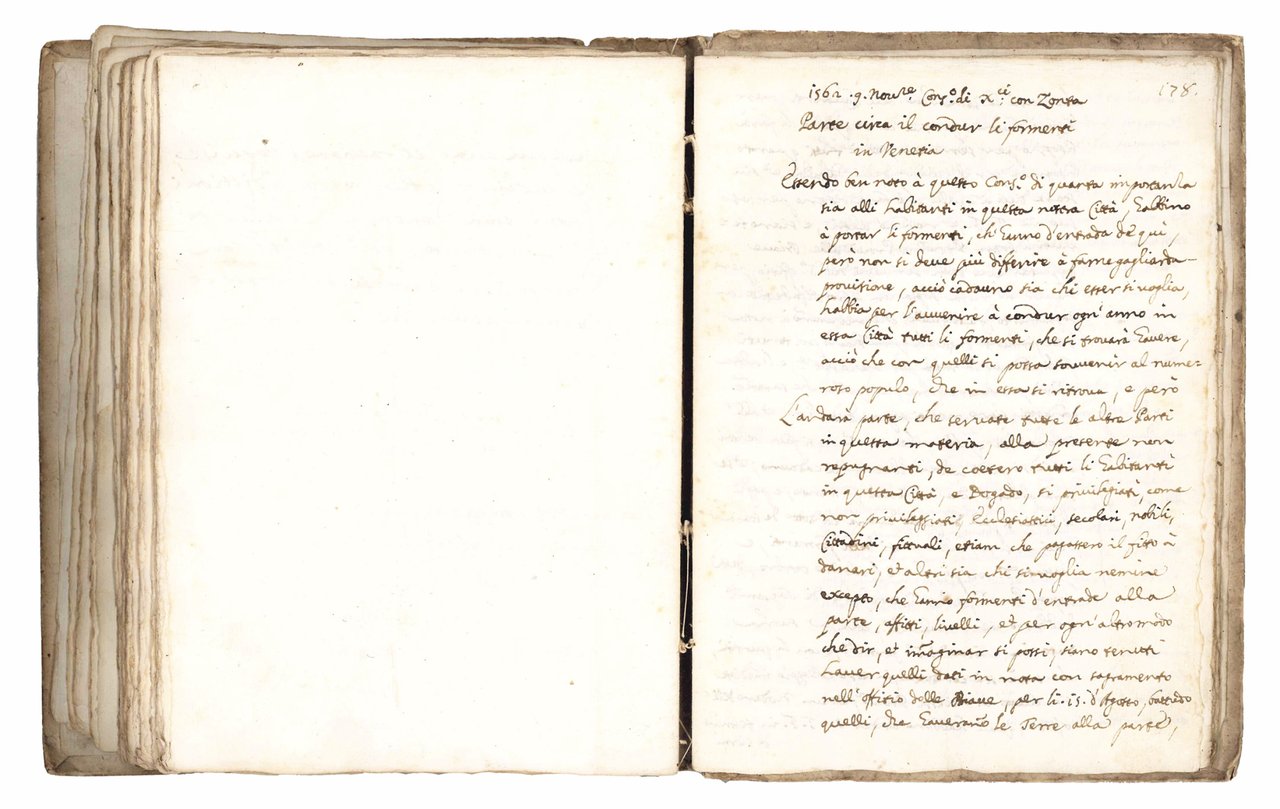 178.
1562 .9. Nou.re Cons.o di X.ci con Zonta
Parte circa il condur li formenti
in Venetia
Essendo ben noto à questo Cons.o di quanta importanza
sia alli habitanti in questa nostra Città, habbino
à portar li formenti, ch' hanno d'entrada de qui,
però non si deve più differire à farne gagliarda
provisione, acciò cadauno sia chi esser si voglia,
habbia per l'avvenire à condur ogn' anno in
essa Città tutti li formenti, che si trovarà havere,
acciò che con quelli si possa souvenir al nume-
roso populo, che in essa si ritrova, e però
L'andarà parte, che servate tutte le altre Parti
in questa materia, alla presente non
repugnanti, de coetero tutti li habitanti
in questa Città, e Dogado, si privilegiati, come
non privileggiati, Ecclesiastici, secolari, nobili,
Cittadini, fittuali, etiam che pagassero il fitto à
danari, et altri sia chi si voglia nemine
excepto, che hanno formenti d'entrade alla
parte, affitti, livelli, et per ogn' altro modo
che dir, et imaginar si possi, siano tenuti
haver quelli dati in nota con sagramento
nell' offitio delle Biave, per li .15. d'Agosto, battudo
quelli, che haveranno le Terre alla parte,